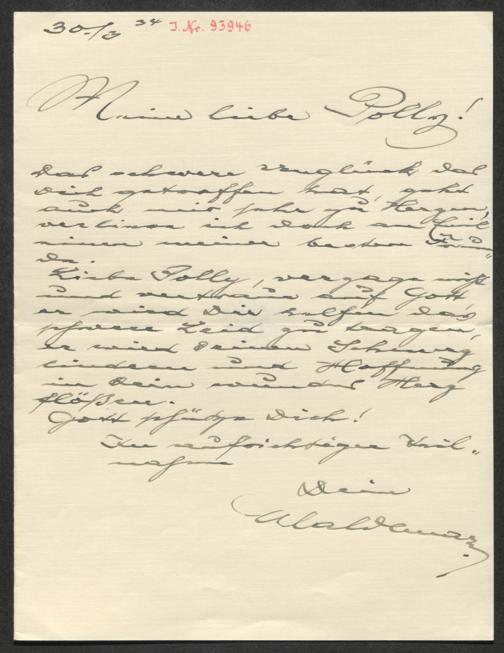 30./3 34 J.Nr. 93946
Meine liebe Polly!
Das schwere Unglück, das
Dich getroffen hat, geht
auch mir sehr zu Herzen,
verliere ich doch an Emil
einen meiner besten Freun-
de.
Liebe Polly, verzage nicht
und vertraue auf Gott
er wird Dir helfen das
schwere Leid zu tragen,
er wird Deinen Schmerz
lindern und Hoffnung
in Dein wundes Herz
flößen.
Gott schütze Dich!
In aufrichtiger Teil-
nahme
Dein
Waldemar.